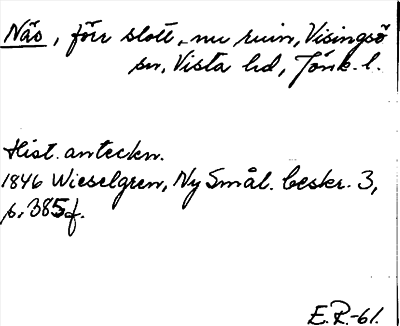 Näs, förr slott, nu ruin, Visingsö
sn, Vista hd, Jönk. l.
Hist. anteckn.
1846 Wieselgren, Ny Smål. beskr. 3,
p. 385f.
E.R.-61.